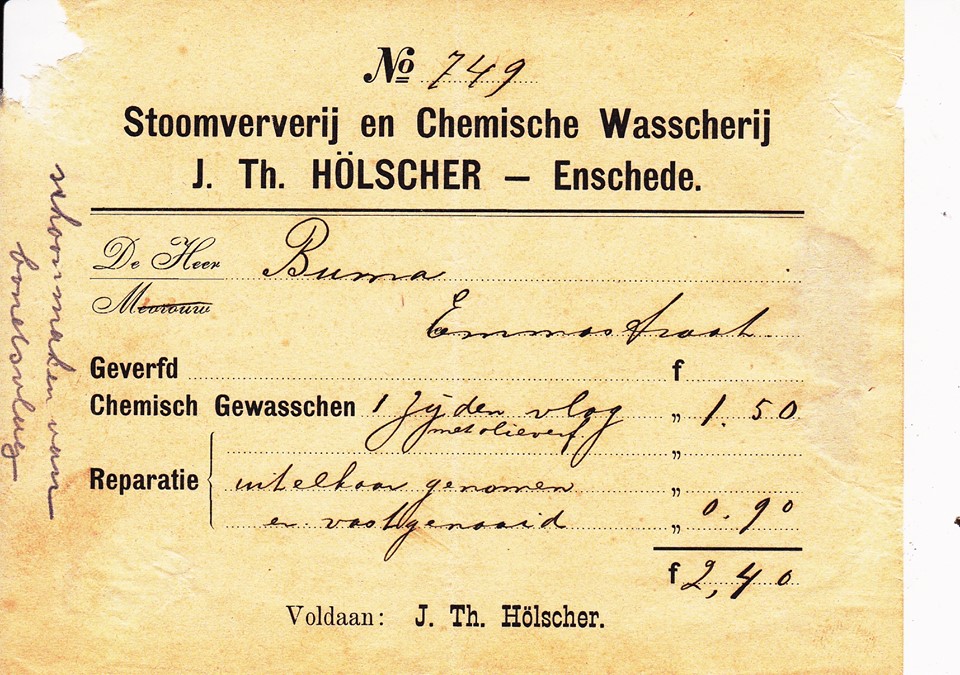 No 749
Stoomververij en Chemische Wasscherij
J. Th. HÖLSCHER — Enschede.
De Heer Buma
Mevrouw
Emmastraat
Geverfd f
Chemisch Gewasschen 1 zijden vlag „ 1.50
met olieverf „
Reparatie uit elkaar genomen „
en vastgenaaid „ 0.90
f 2,40
Voldaan: J. Th. Hölscher.
schoonmaken van